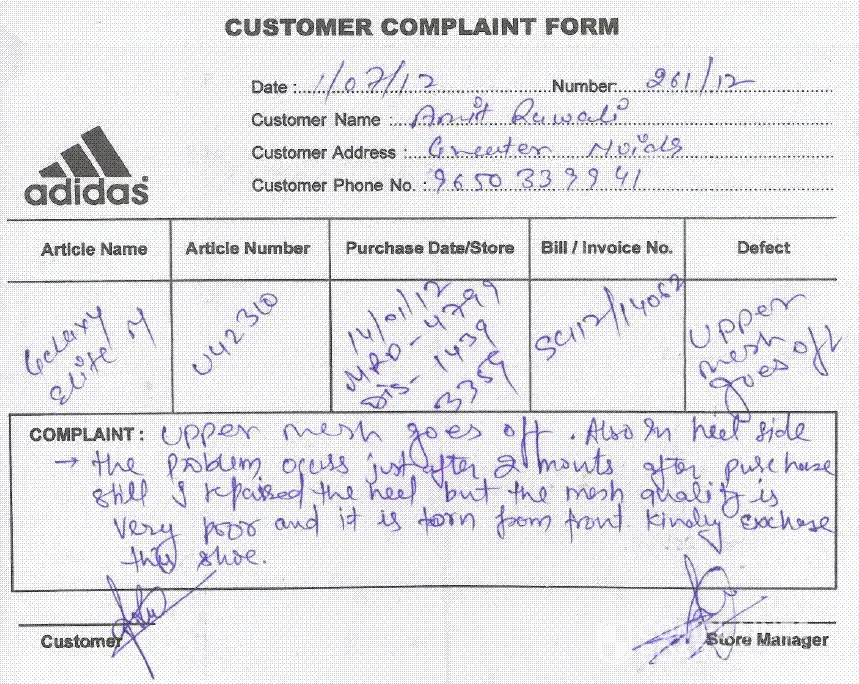 CUSTOMER COMPLAINT FORM
Date : 1/07/12 Number: 261/12
Customer Name : Amit Ruwali
Customer Address : Greater Noida
Customer Phone No. : 9650339941
adidas
Article Name Article Number Purchase Date/Store Bill / Invoice No. Defect
Galaxy
Elite M
U42310
14/01/12
MRP - 4799
DIS - 1439
3359
SC112/14062
Upper
mesh
goes off
COMPLAINT : Upper mesh goes off. Also in heel side
→ the problem ocuss just after 2 mounts after purchase
still I repaired the heel but the mesh quality is
very poor and it is torn from front. Kindly exchase
this shoe.
Customer Store Manager